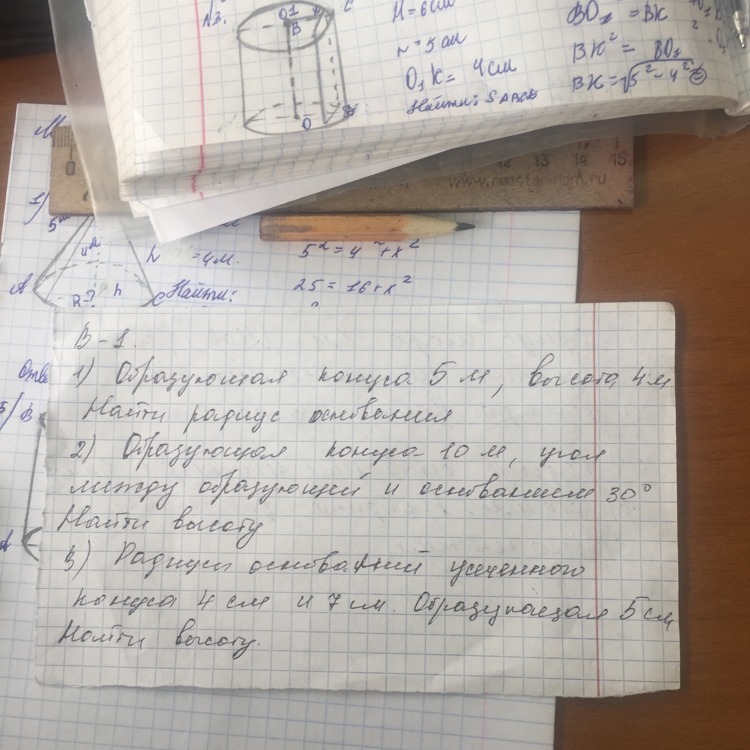 N3.
O1
C
B
O
H = 6 см
r = 5 см
O₁K = 4 см
Найти: SABCD
BO₁ = BK
BK² = BO₁
BK = √5² - 4²
0
12 13 14 15
М
1)
5м
4м
h
R=?
h
A
= 4м.
Найти:
5² = 4² + x²
25 = 16 + x²
Отве
B
A
В-1.
1) Образующая конуса 5 м, высота 4 м
Найти радиус основания
2) Образующая конуса 10 м, угол
между образующей и основанием 30°
Найти высоту
3) Радиусы оснований усеченного
конуса 4 см и 7 см. Образующая 5 см
Найти высоту.